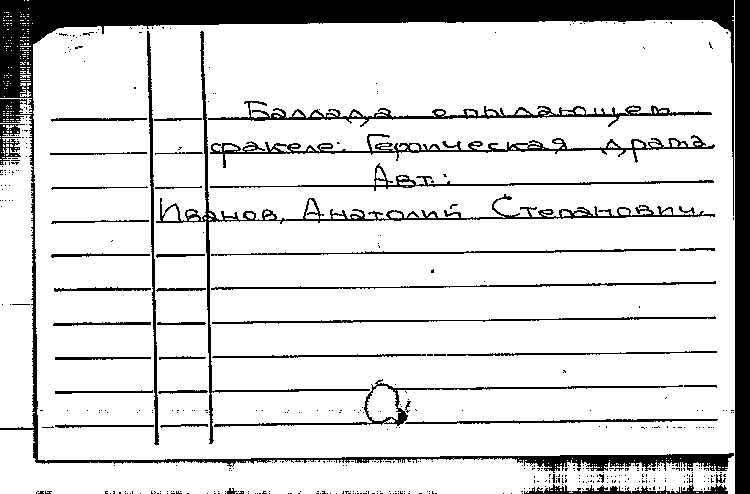 Баллада о пылающем
факеле: Героическая драма
Авт.:
Иванов, Анатолий Степанович.